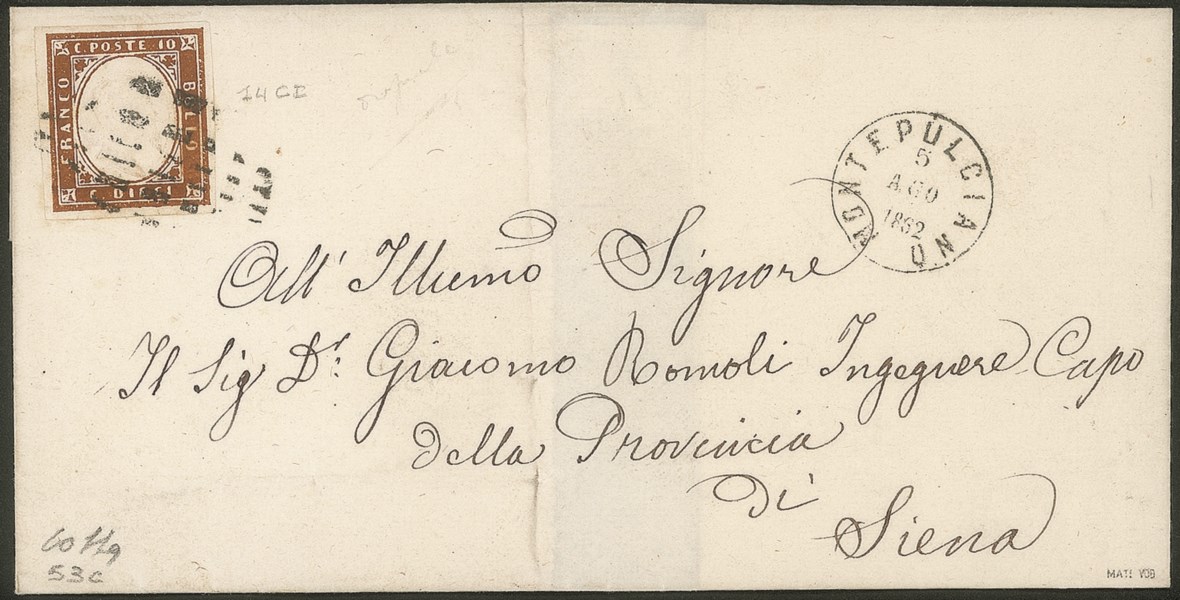 C. POSTE 10
FRANCO
BOLLO
C. DIECI
14 CI
MONTEPULCIANO
5
AGO
1862
All' Illumo Signore
Il Sig Dr. Giacomo Romoli Ingegnere Capo
della Provincia
di
Siena
53c